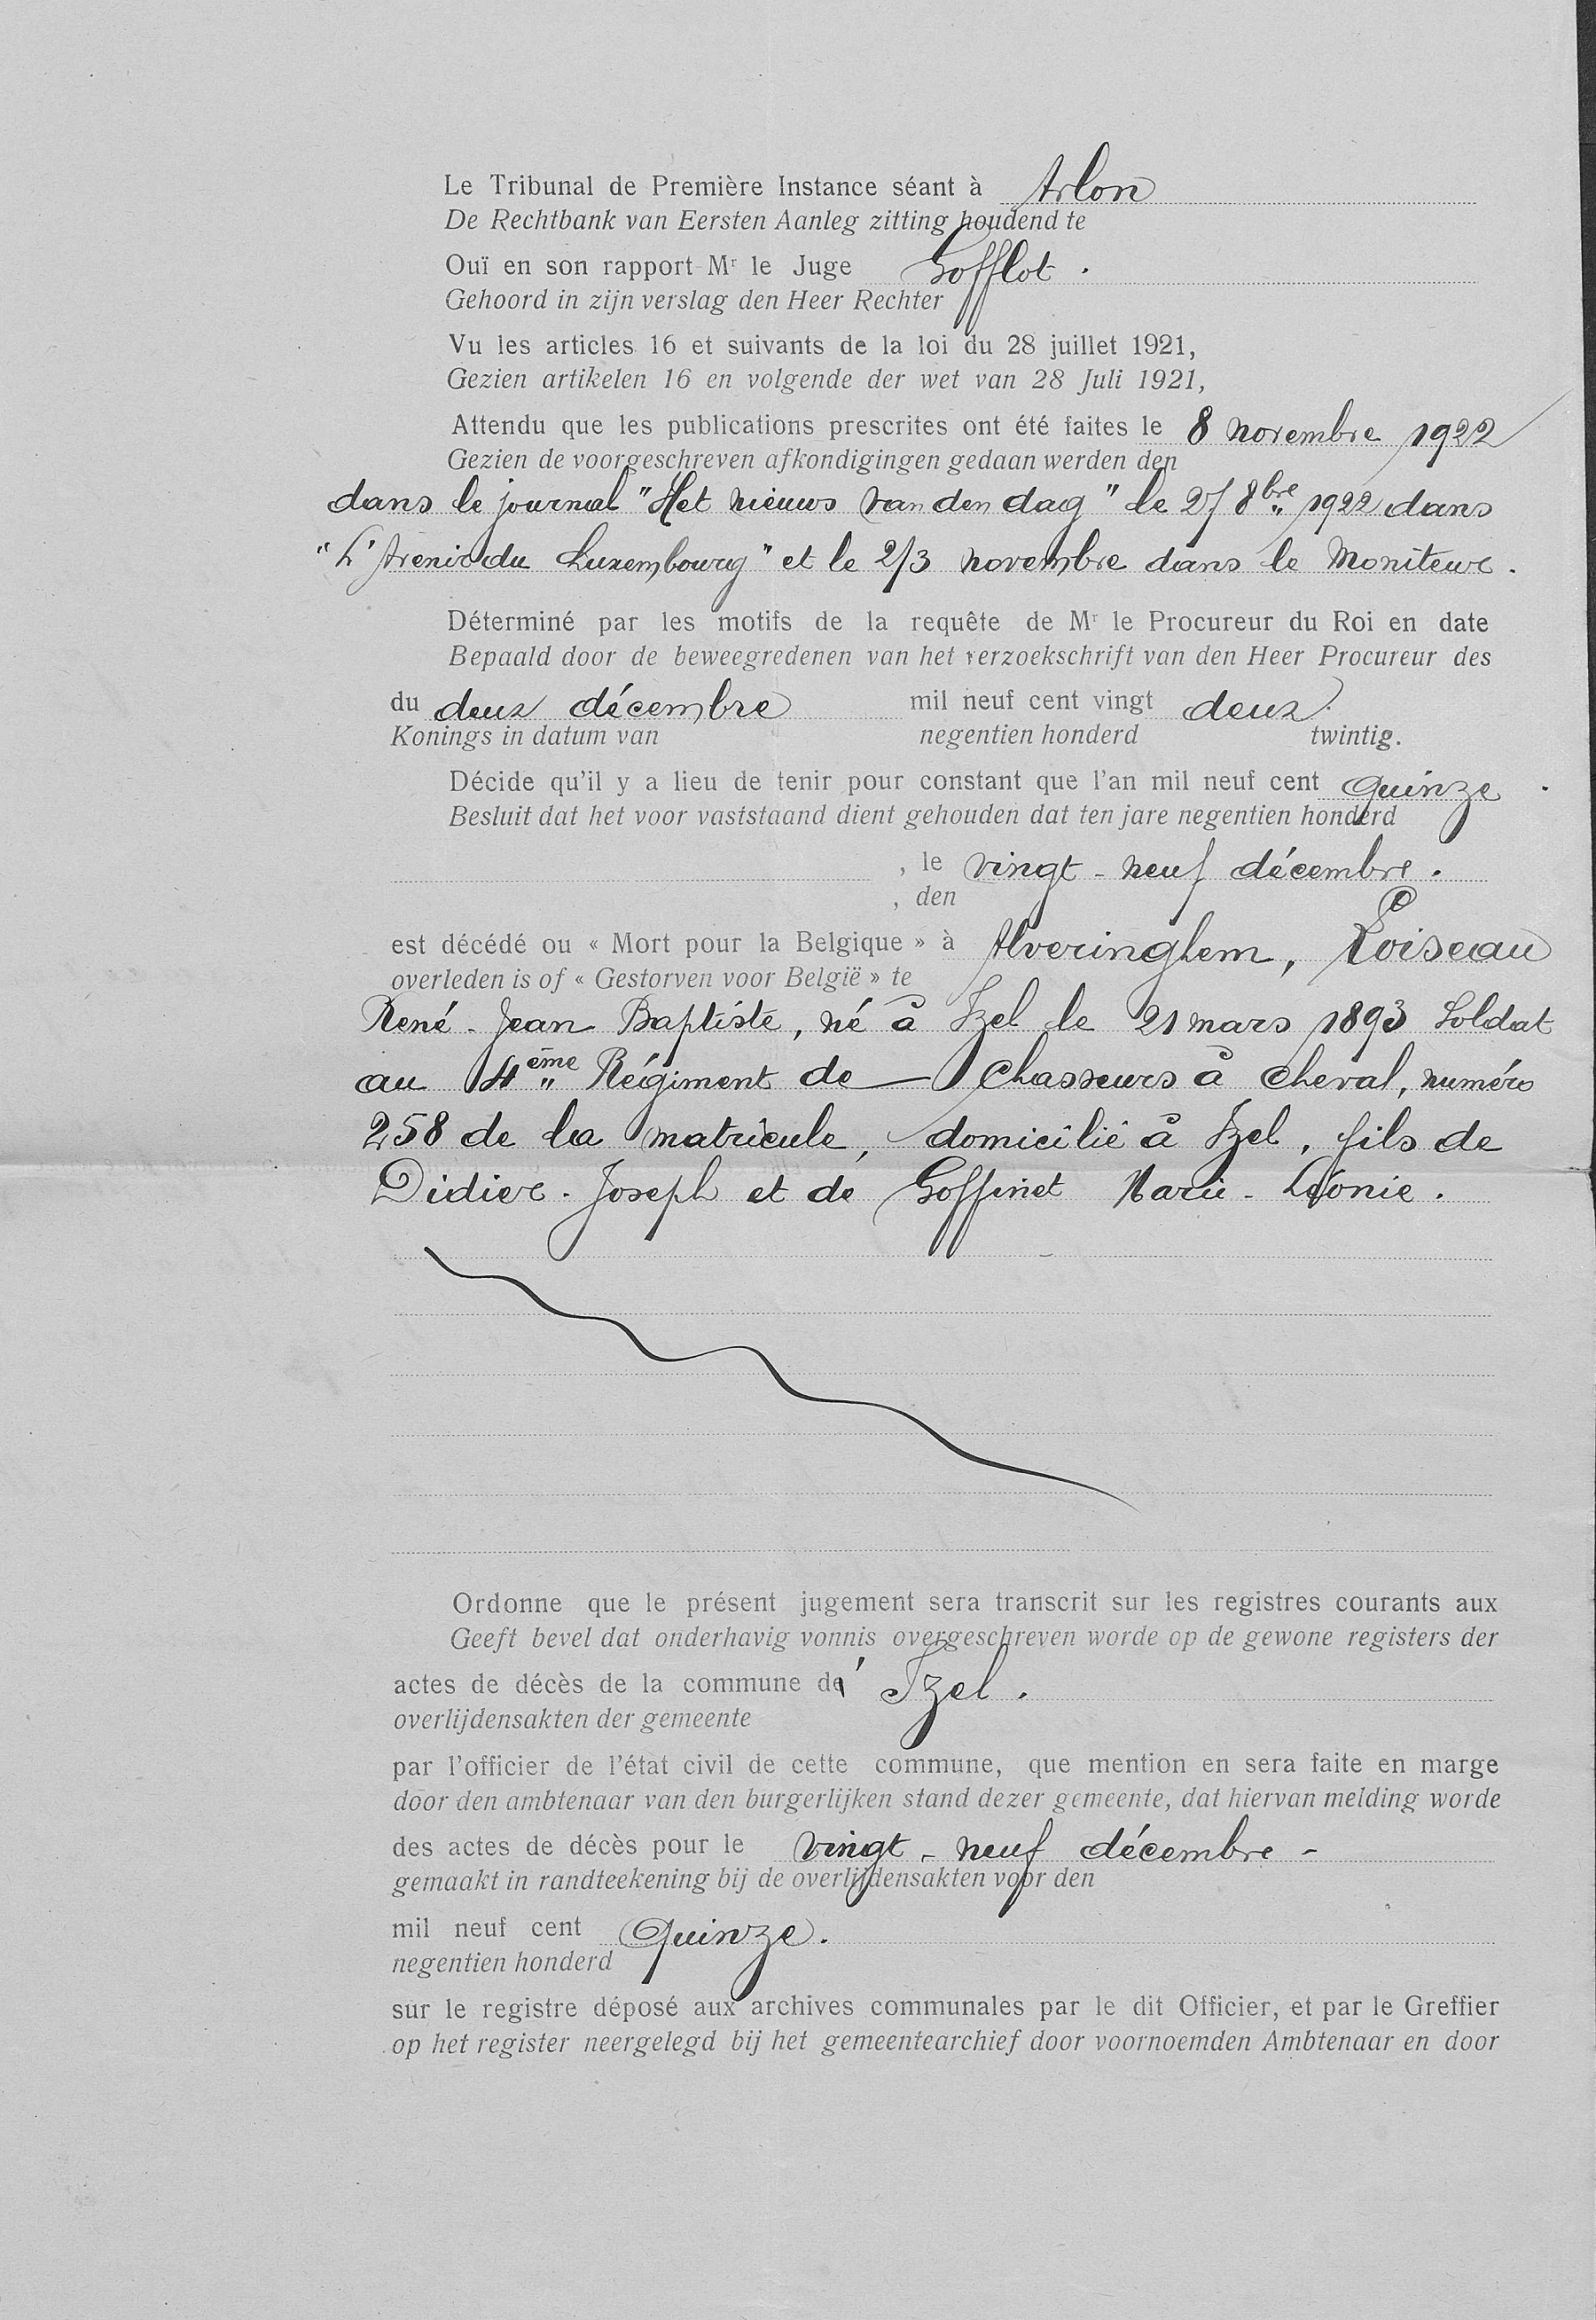 Le Tribunal de Première Instance séant à Arlon
De Rechtbank van Eersten Aanleg zitting houdend te
Ouï en son rapport Mr le Juge Gofflot.
Gehoord in zijn verslag den Heer Rechter
Vu les articles 16 et suivants de la loi du 28 juillet 1921,
Gezien artikelen 16 en volgende der wet van 28 Juli 1921,
Attendu que les publications prescrites ont été faites le 8 novembre 1922
Gezien de voorgeschreven afkondigingen gedaan werden den
dans le journal "Het nieuws van den dag" le 27 8bre 1922 dans
"L'Avenir du Luxembourg" et le 2/3 novembre dans le Moniteur.
Déterminé par les motifs de la requête de Mr le Procureur du Roi en date
Bepaald door de beweegredenen van het verzoekschrift van den Heer Procureur des
du deux décembre mil neuf cent vingt deux.
Konings in datum van negentien honderd twintig.
Décide qu'il y a lieu de tenir pour constant que l'an mil neuf cent quinze.
Besluit dat het voor vaststaand dient gehouden dat ten jare negentien honderd
, le vingt-neuf décembre.
, den
est décédé ou « Mort pour la Belgique » à Alveringhem, Loiseau
overleden is of « Gestorven voor België » te
René-Jean Baptiste, né à Izel le 21 mars 1893 Soldat
au 4ème Régiment de — Chasseurs à cheval, numéro
258 de la matricule, domicilié à Izel, fils de
Didier-Joseph et de Goffinet Marie-Léonie.
Ordonne que le présent jugement sera transcrit sur les registres courants aux
Geeft bevel dat onderhavig vonnis overgeschreven worde op de gewone registers der
actes de décès de la commune d' Izel.
overlijdensakten der gemeente
par l'officier de l'état civil de cette commune, que mention en sera faite en marge
door den ambtenaar van den burgerlijken stand dezer gemeente, dat hiervan melding worde
des actes de décès pour le vingt-neuf décembre -
gemaakt in randteekening bij de overlijdensakten voor den
mil neuf cent Quinze.
negentien honderd
sur le registre déposé aux archives communales par le dit Officier, et par le Greffier
op het register neergelegd bij het gemeentearchief door voornoemden Ambtenaar en door